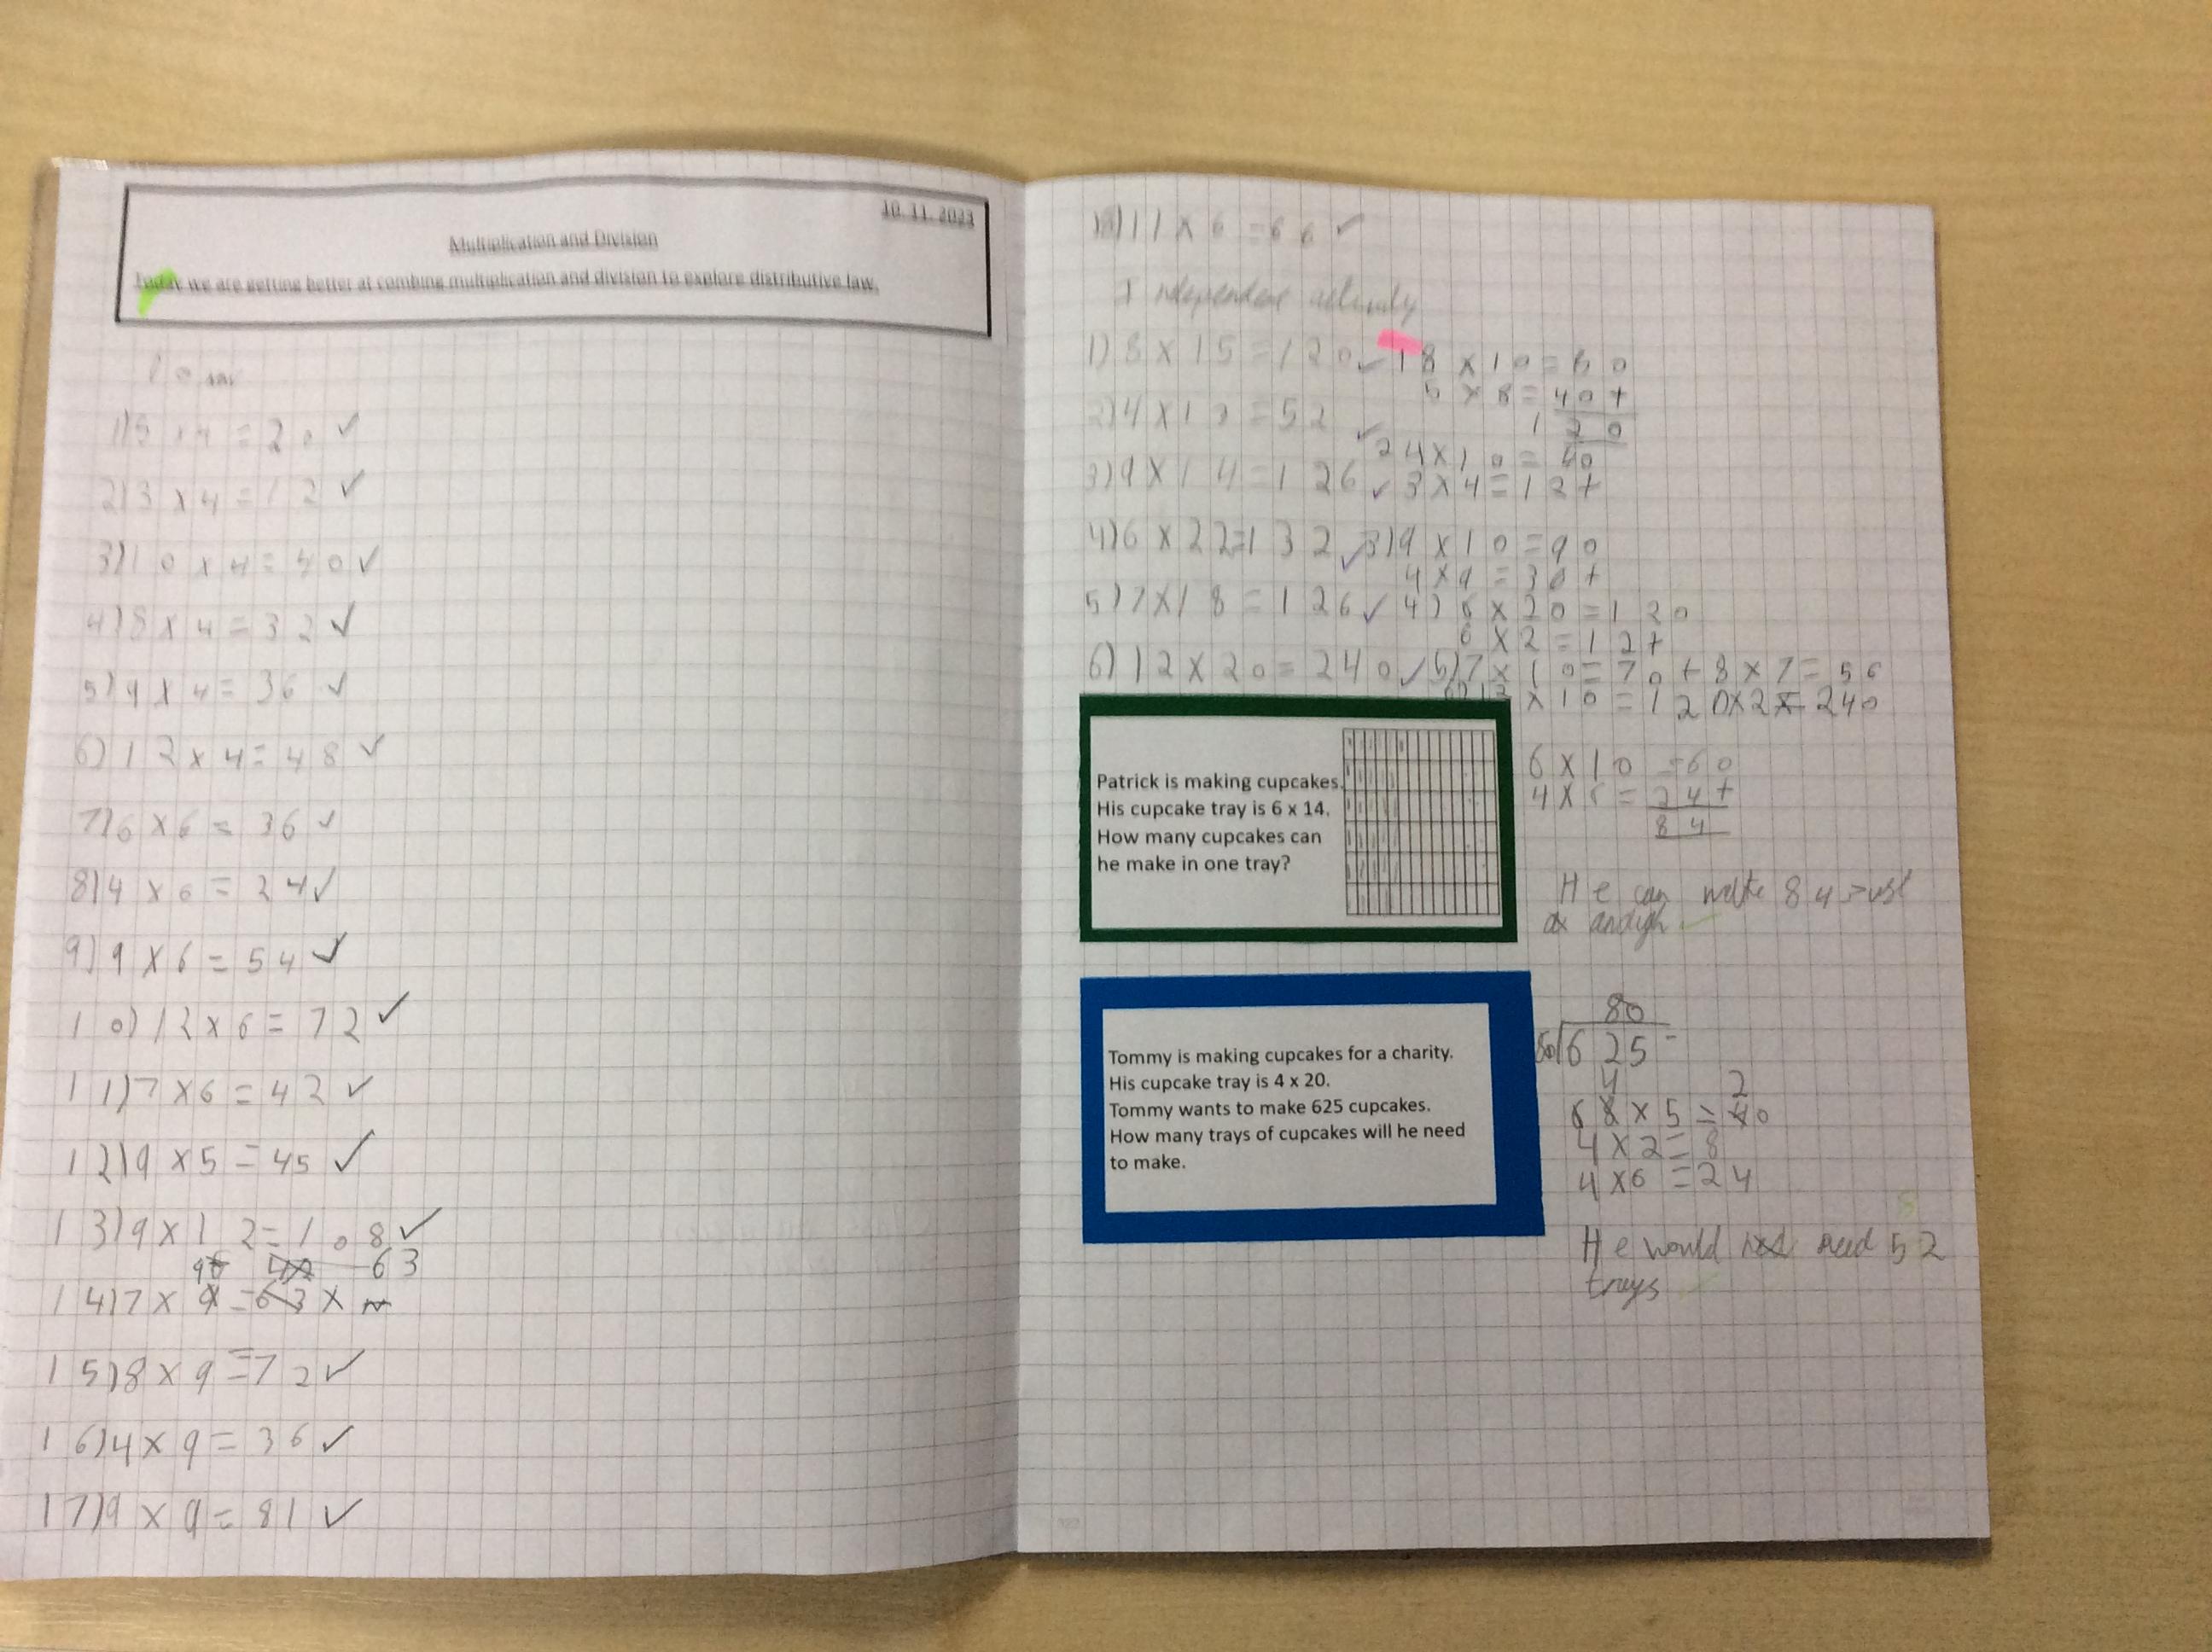 10.11.2023
Multiplication and Division
Today we are getting better at combing multiplication and division to explore distributive law.
1)5 x 4 = 20 ✓
2)3 x 4 = 12 ✓
3)10 x 4 = 40 ✓
4)8 x 4 = 32 ✓
5)9 x 4 = 36 ✓
6)12 x 4 = 48 ✓
7)6 x 6 = 36 ✓
8)4 x 6 = 24 ✓
9)9 x 6 = 54 ✓
10)12 x 6 = 72 ✓
11)7 x 6 = 42 ✓
12)9 x 5 = 45 ✓
13)9 x 12 = 108 ✓
63
14)7 x 9 = 63 x
15)8 x 9 = 72 ✓
16)4 x 9 = 36 ✓
17)9 x 9 = 81 ✓
11 x 6 = 66 ✓
Independent activity
1)8 x 15 = 120 ✓
2)4 x 13 = 52 ✓
3)9 x 14 = 126 ✓
4)6 x 22 = 132 ✓
5)7 x 18 = 126 ✓
6)12 x 20 = 240 ✓
1 8 x 10 = 80
5 x 8 = 40 +
120
2 4 x 10 = 40
3 x 4 = 12 +
3)9 x 10 = 90
4 x 9 = 36 +
4)6 x 20 = 120
6 x 2 = 12 +
5)7 x 10 = 70 + 8 x 7 = 56
6)12 x 10 = 120 x 2 = 240
Patrick is making cupcakes.
His cupcake tray is 6 x 14.
How many cupcakes can
he make in one tray?
6 x 10 = 60
4 x 6 = 24 +
84
He can 84
Tommy is making cupcakes for a charity.
His cupcake tray is 4 x 20.
Tommy wants to make 625 cupcakes.
How many trays of cupcakes will he need
to make.
80
80 625
4 x 2 = 8
4 x 6 = 24
He would need 52
trays